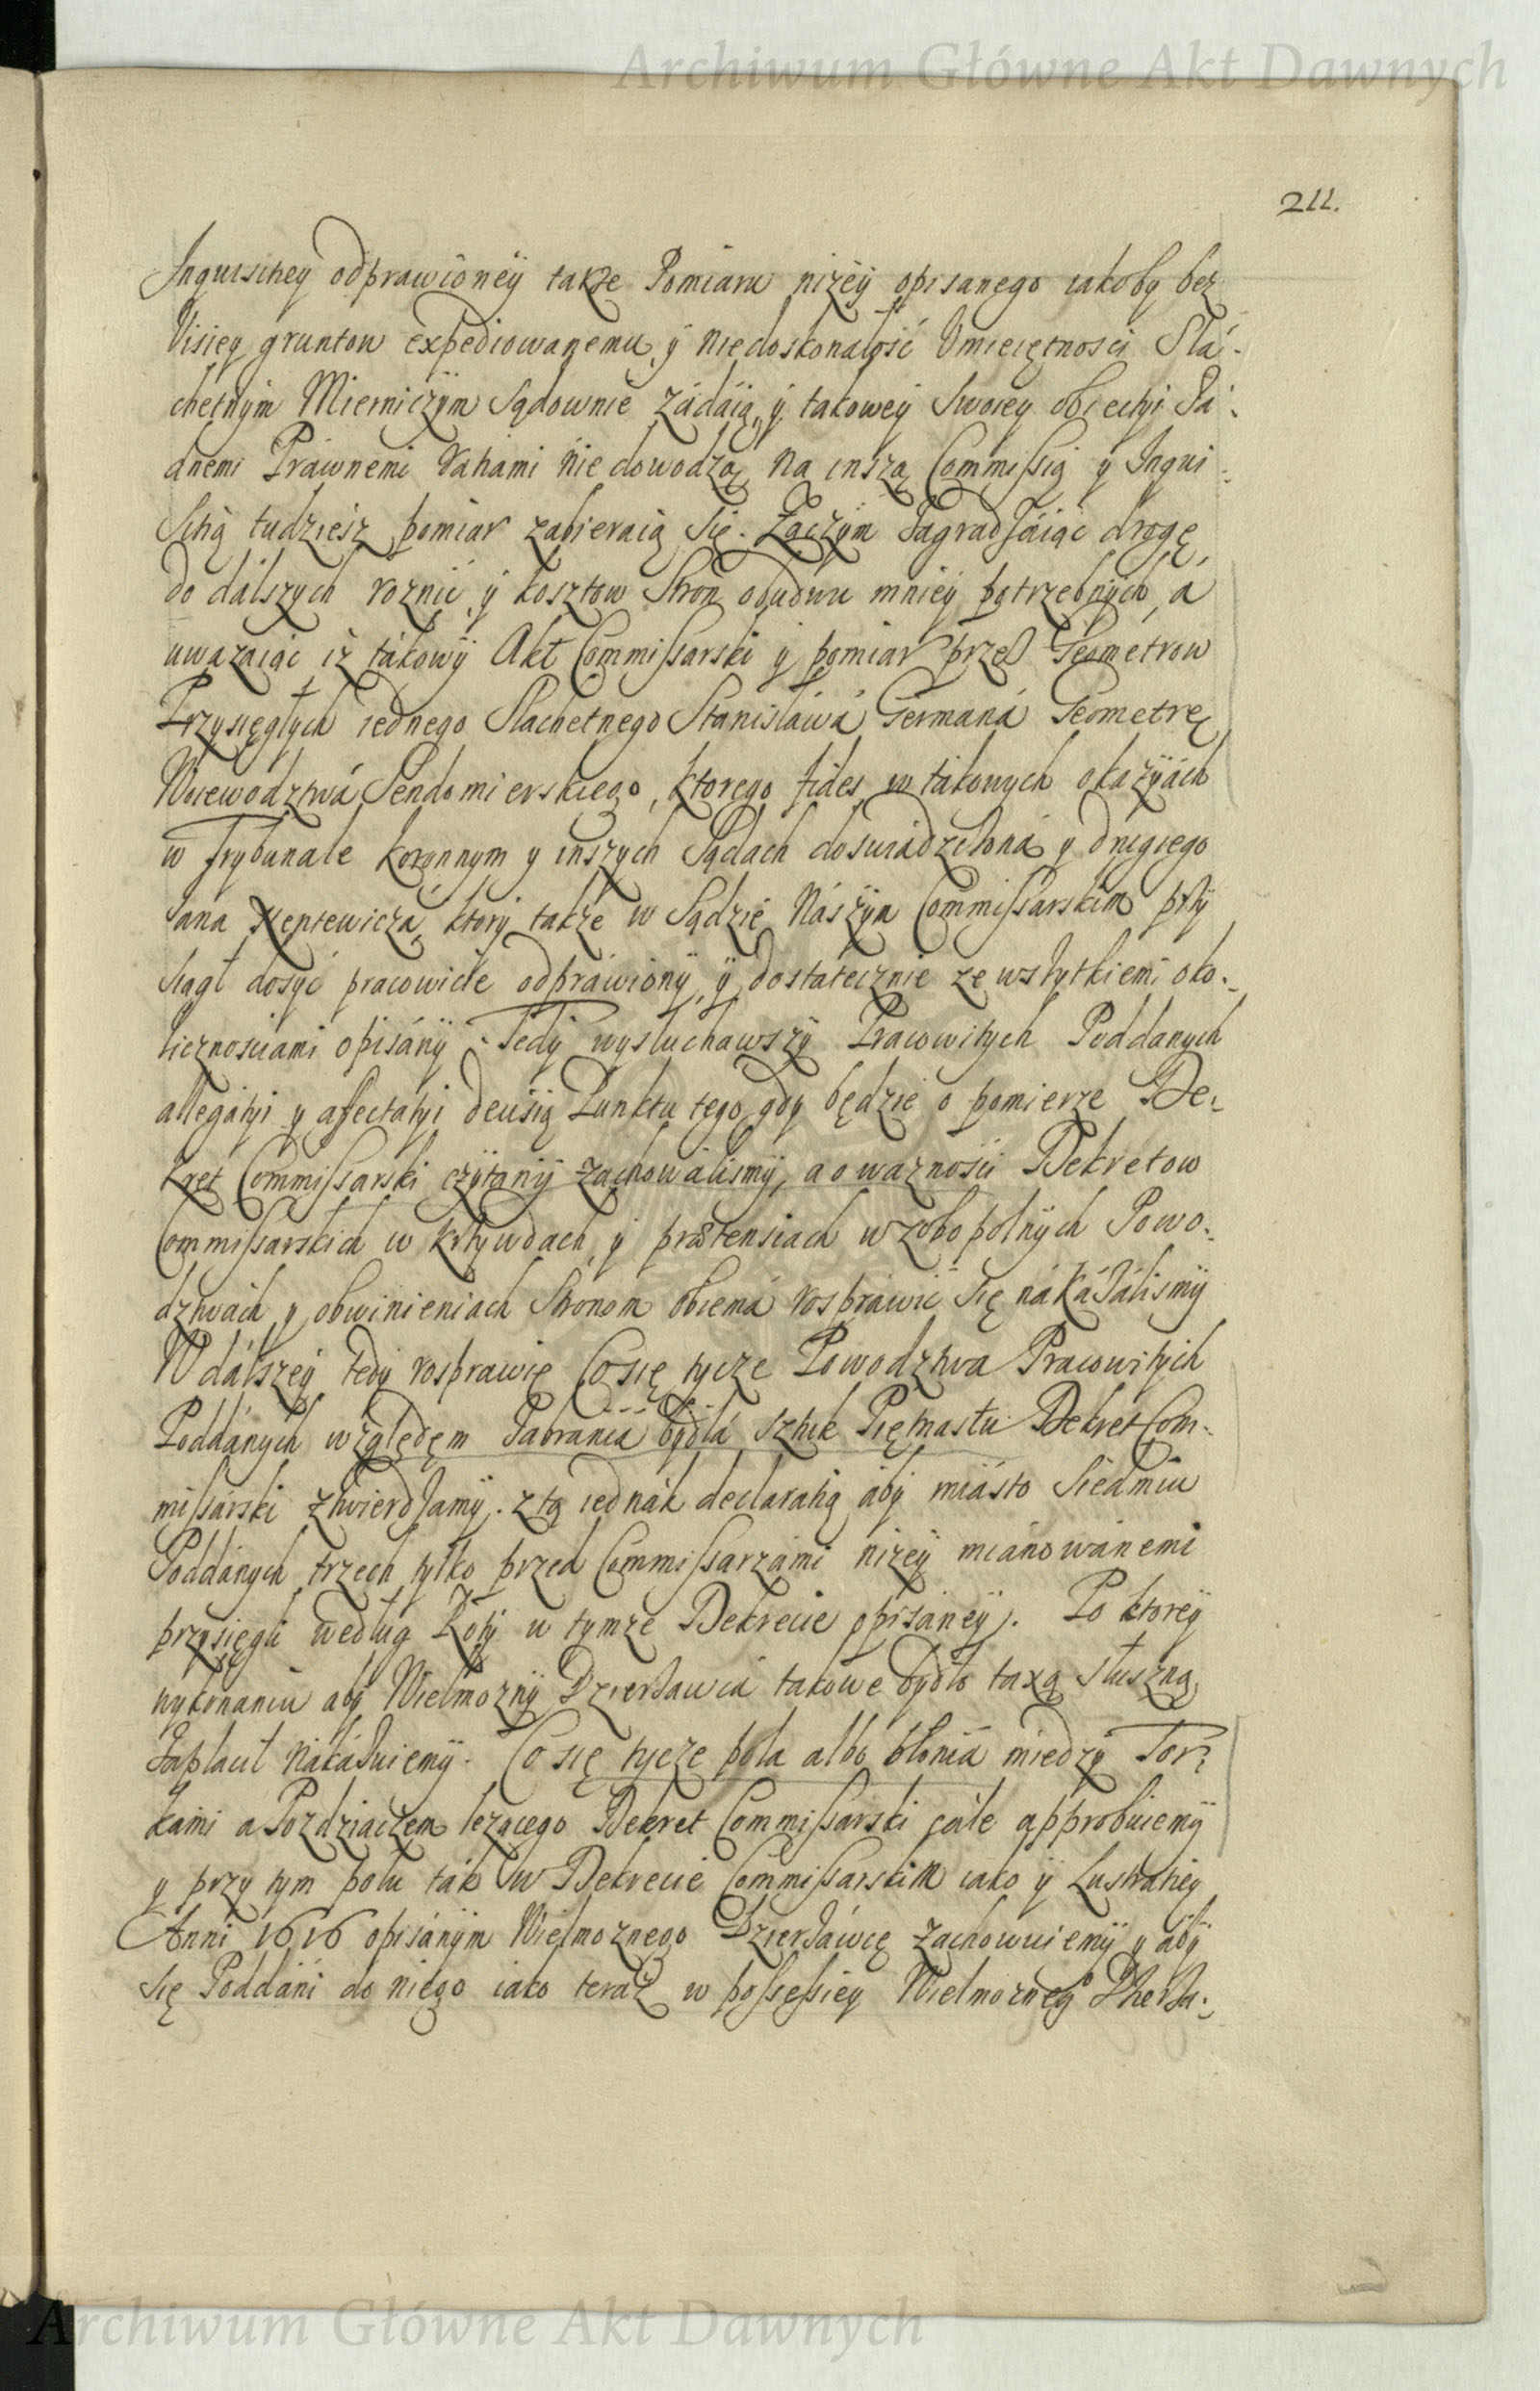 Archiwum Główne Akt Dawnych
211.
Inquisitiey odprawioney także Pomiaru niżey opisanego iakoby bez
Visiey gruntow expediowanemu, y niedoskonałość Umieiętnosci Sla-
chetnym Mierniczym Sądownie zadaią, y takowey Swoiey obiectyi Ża-
dnemi Prawnemi Ratiami nie dowodzą, Na inszą Commissią y Inqui-
Sitią tudziesz pomiar zabieraią Się. Zaczym Zagradzaiąc drogę
do dalszych roznic, y kosztow Stron obudwu mniey potrzebnych, a
uwazaiąc iż takowy Akt Commissarski y pomiar przez Geometrow
Przysięgłych iednego Slachetnego Stanisława Germana Geometrę
Woiewodztwa Sendomierskiego, ktorego fides w takowych okazyach
w Trybunale Koronnym y inszych Sądach doswiadzczona y drugiego
Jana Xeptewicza, ktory także w Sądzie Naszym Commissarskim przy
siągł dosyć pracowicie odprawiony, y dostatecznie ze wszytkiemi oko-
licznosciami opisany. Tedy wysłuchawszy Pracowitych Poddanych
allegatyi y afectatyi decisią Punktu tego, gdy będzie o pomierze De-
kret Commissarski czytany zachowalismy, a o waznosci Dekretow
Commissarskich w krzywdach, y praetensiach w zobopolnych Powo-
dztwach y obwinieniach Stronom obiema rosprawić się nakazalismy
W dalszey tedy rosprawie Co się tycze Powodztwa Pracowitych
Poddanych względem Zabrania bydła sztuk Piętnastu Dekret Com-
missarski ztwierdzamy. z tą iednak declaratią aby miasto Siedmiu
Poddanych trzech tylko przed Commissarzami niżey mianowanemi
przysięgli według Roty w tymże Dekrecie opisaney. Po ktorey
wykonaniu aby Wielmozny Dzierżawca takowe bydło taxą słuszną
Zapłacił nakazuiemy. Co się tycze pola albo błonia miedzy Tor-
kami a Pozdziaczem lezącego Dekret Commissarski cale approbuiemy
y przy tym polu tak w Dekrecie Commissarskim iako y Lustratiey
Anni 1616 opisanym Wielmoznego Dzierżawcę zachowuiemy y aby
się Poddani do niego iako teraz w possessiey Wielmozneg° Dzierża-
Archiwum Główne Akt Dawnych